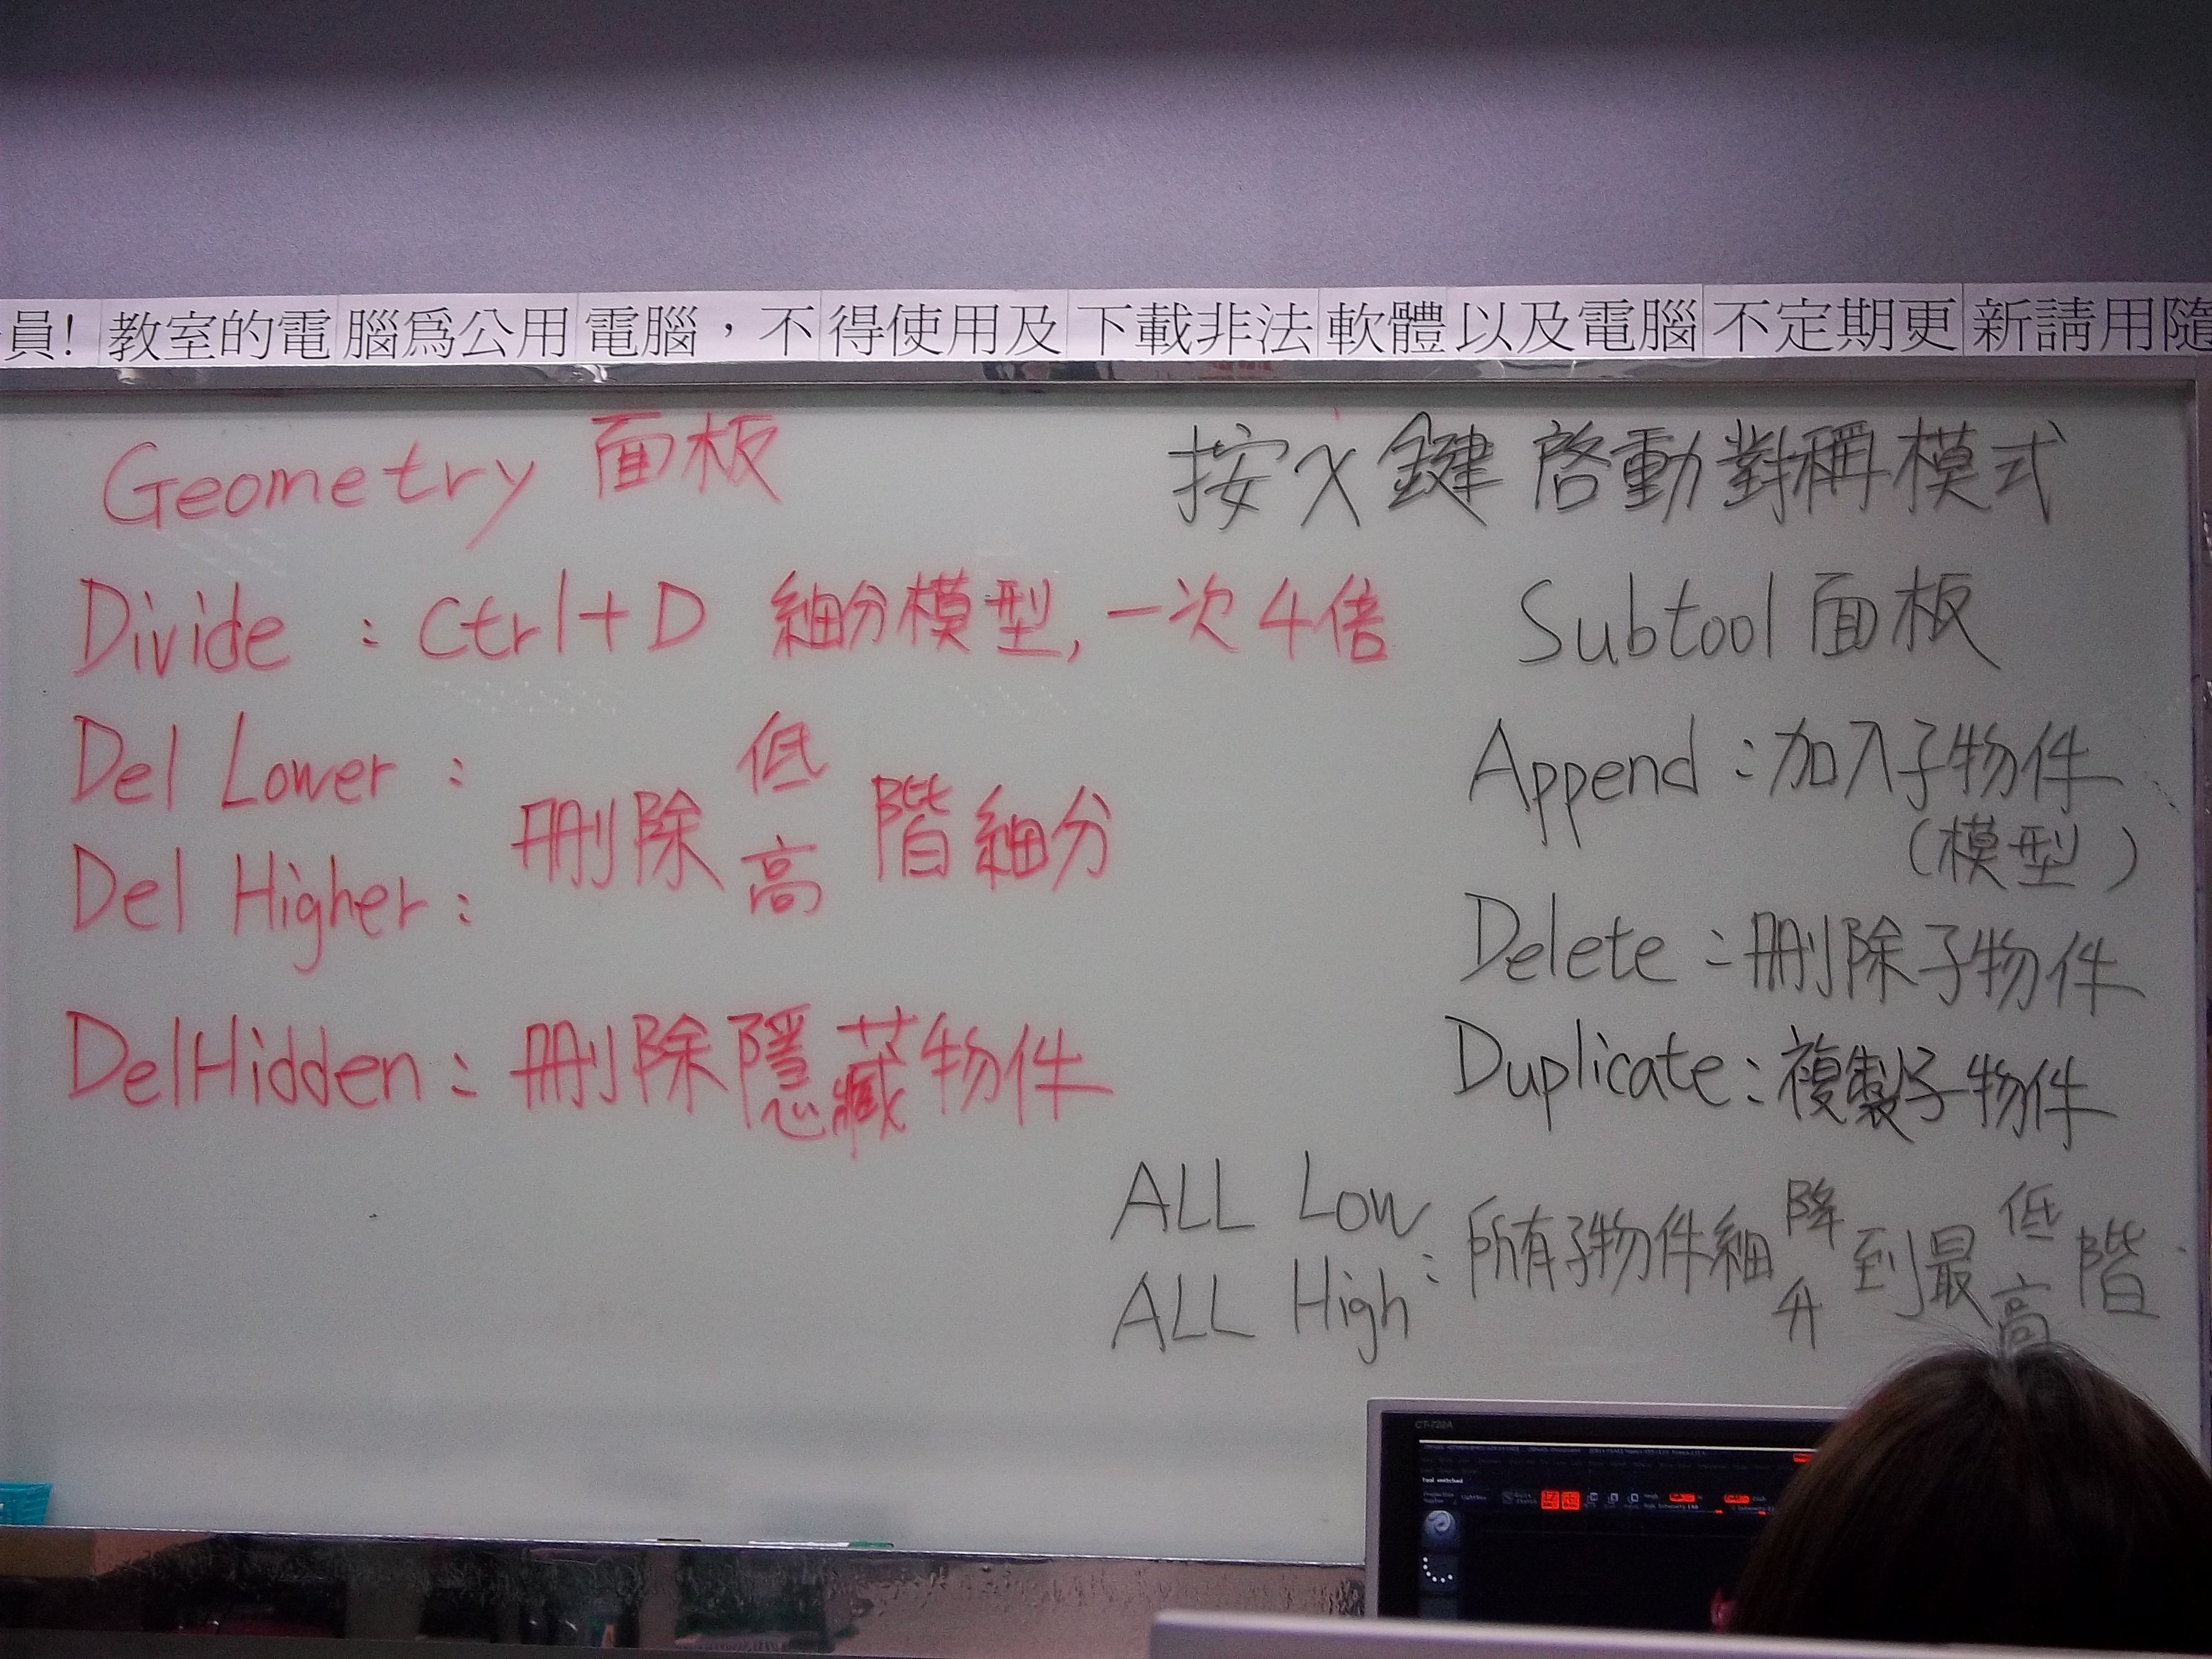 員! 教室的電腦爲公用電腦，不得使用及下載非法軟體以及電腦不定期更新請用隨
Geometry 面板
Divide : Ctrl+D 細分模型, 一次4倍
Del Lower :
Del Higher :
刪除 低 高 階細分
DelHidden : 刪除隱藏物件
按X鍵啓動對稱模式
Subtool 面板
Append : 加入子物件
(模型)
Delete : 刪除子物件
Duplicate : 複製子物件
ALL Low
ALL High
: 所有子物件細 降 升 到最 低 高 階
CT-722A